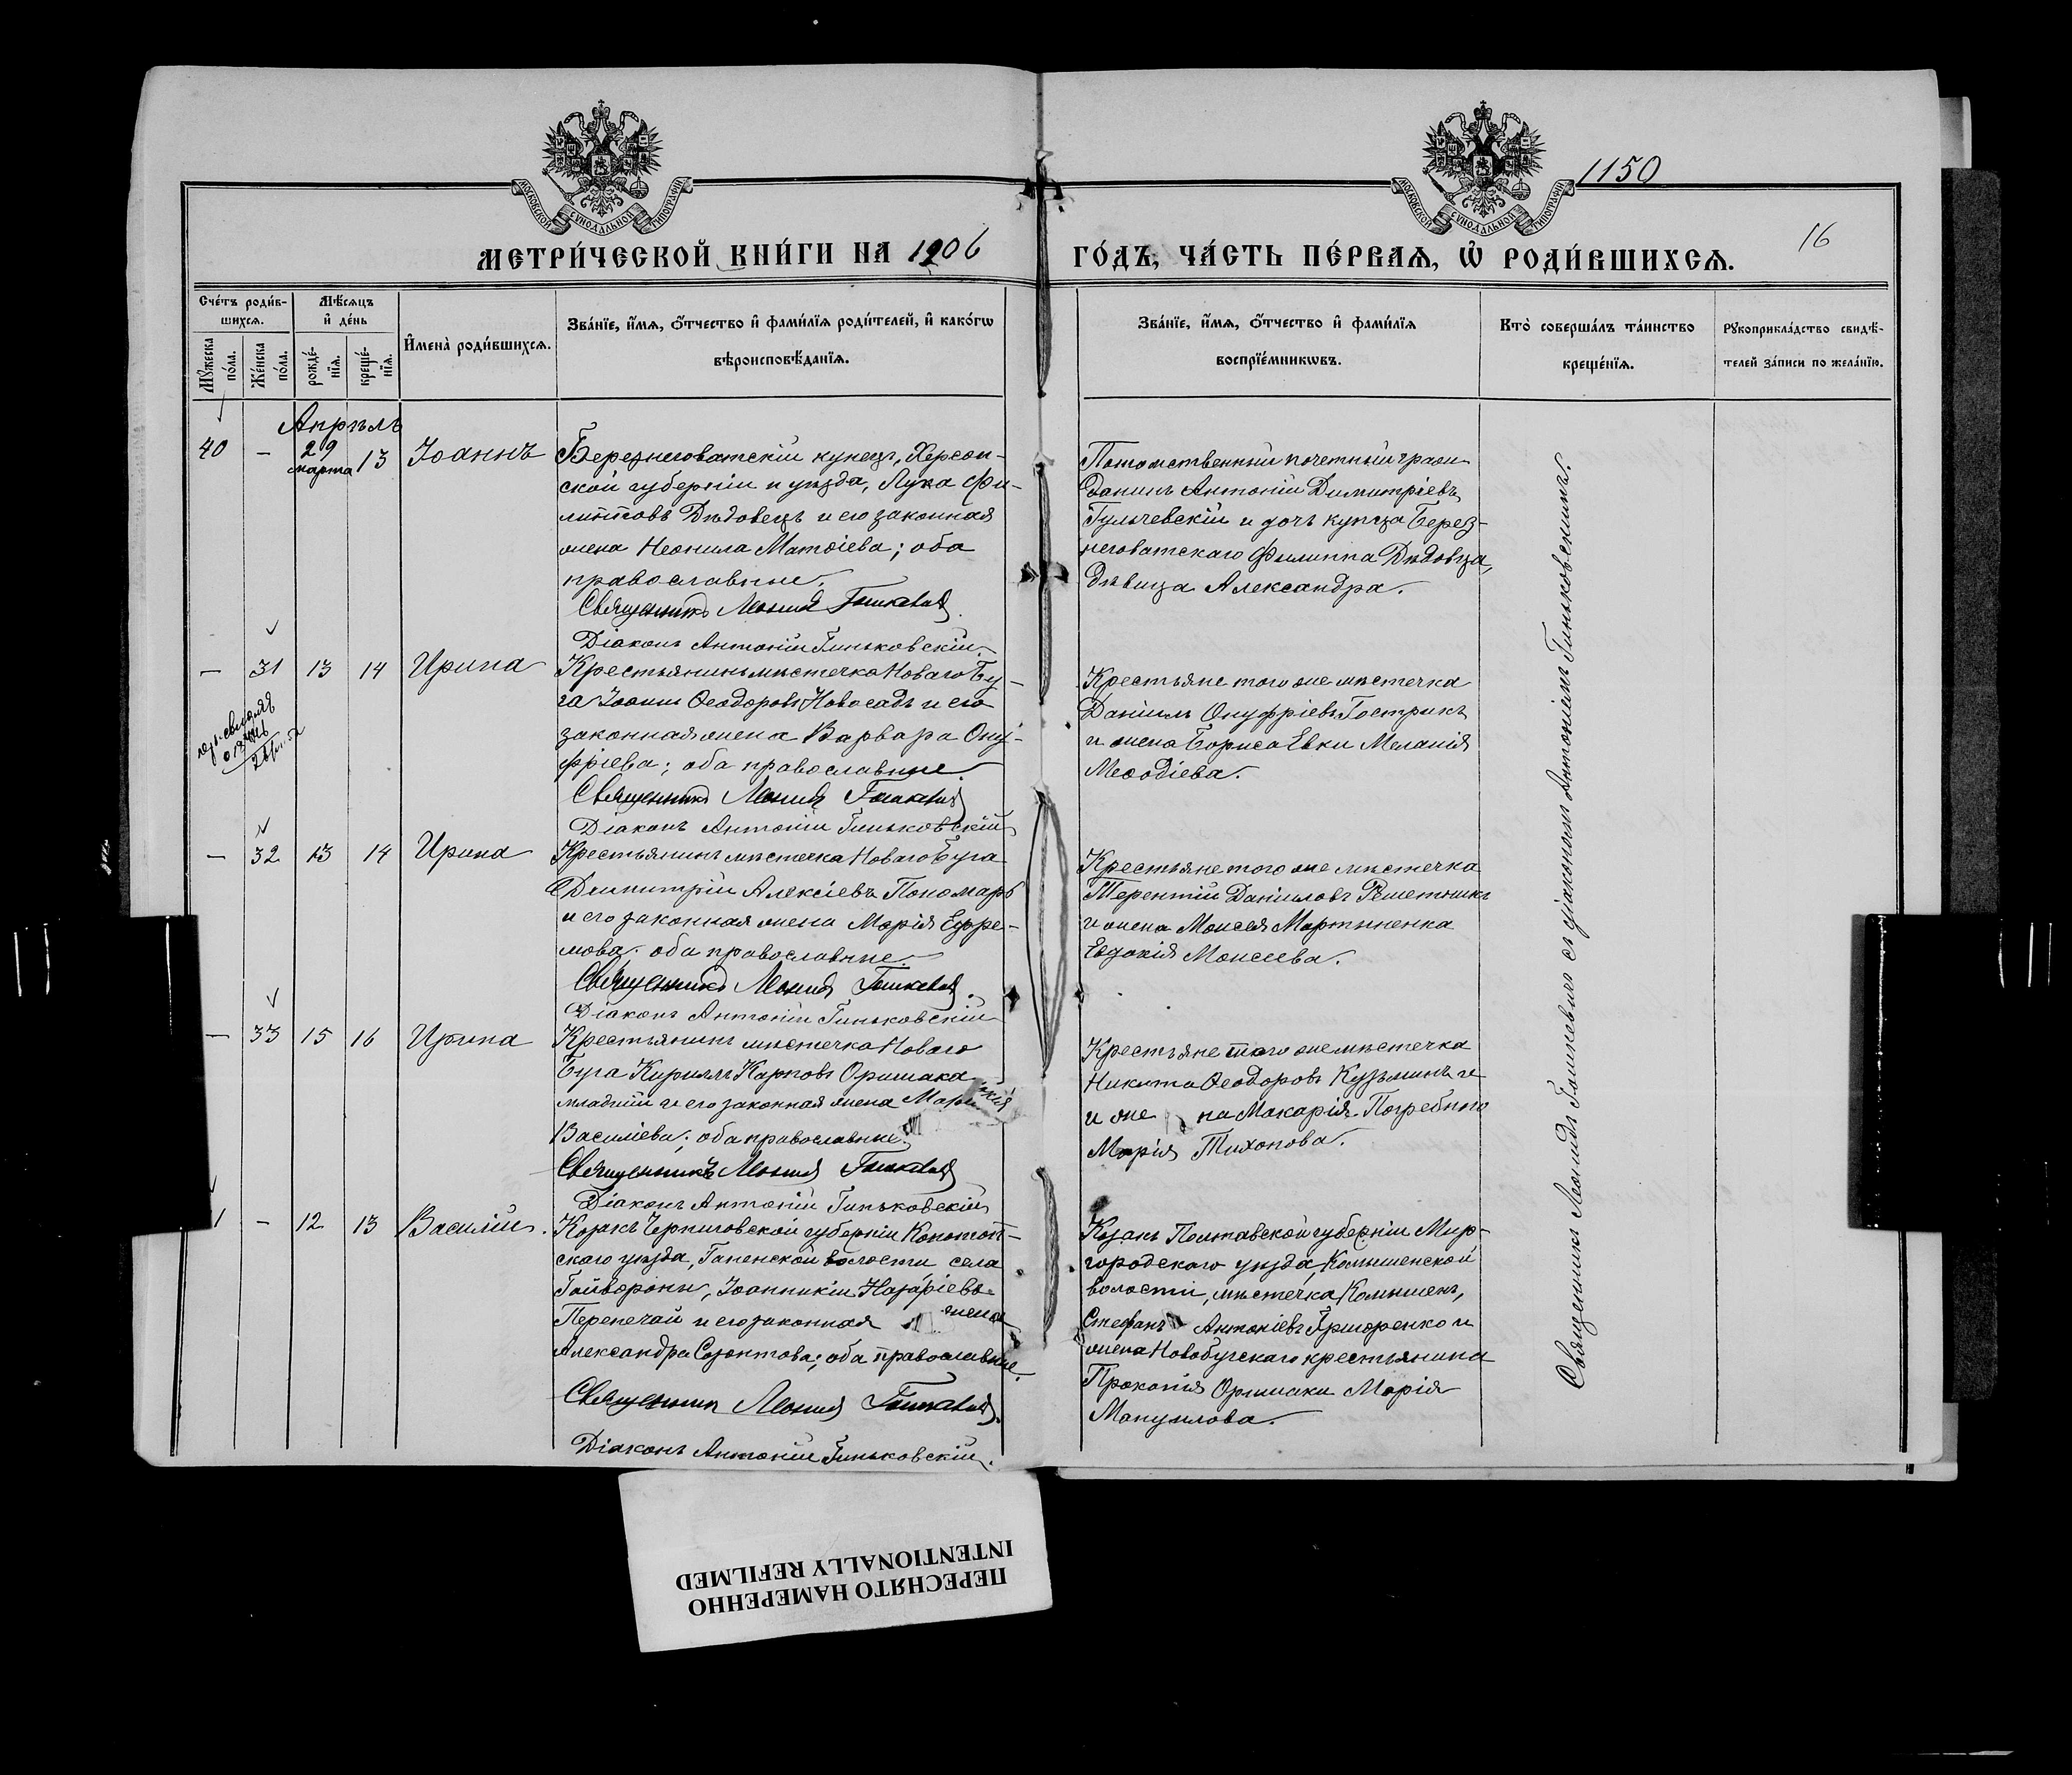 1150
16
МОСКОВСКОЙ СѴНОДАЛЬНОЙ ТИПОГРАФІИ
МОСКОВСКОЙ СѴНОДАЛЬНОЙ ТИПОГРАФІИ
МЕТРИ́ЧЕСКОЙ КНИ́ГИ НА 1906
ГО́ДЪ, ЧА́СТЬ ПЕ́РВАѦ, Ѽ РОДИ́ВШИХСѦ.
Сче́тъ роди́в-
шихсѧ.
Мꙋ́жеска по́ла.
Же́нска по́ла.
Мѣ́сѧцъ
и҆ де́нь
рожде́-нїѧ.
креще́-нїѧ.
И҆мена̀ роди́вшихсѧ.
Зва́нїе, и҆́мѧ, ѻ҆́тчество и҆ фами́лїѧ роди́телей, и҆ како́гѡ
вѣроисповѣ́данїѧ.
Зва́нїе, и҆́мѧ, ѻ҆́тчество и҆ фами́лїѧ
воспрїе́мникѡвъ.
Кто̀ соверша́лъ та́инство
креще́нїѧ.
Рꙋкоприкла́дство свидѣ́-
телей за́писи по жела́нїю.
Апрѣль
40 — 29 марта 13 Іоаннъ
Березнеговатскій купецъ, Херсон-
ской губерніи и уѣзда, Лука Фи-
липповъ Дѣдовецъ и его законная
жена Неонила Матѳіева; оба
православные.
Священникъ Леонидъ Гошкевичъ
Діаконъ Антоній Гиньковскій.
Потомственный почетный граж-
данинъ Антоній Димитріевъ
Гульчевскій и дочь купца Берез-
неговатскаго Филиппа Дѣдовца,
дѣвица Александра.
— 31 13 14 Ирина
Крестьянинъ мѣстечка Новаго Бу-
га Іоаннъ Ѳеодоровъ Новосадъ и его
законная жена Варвара Ону-
фріева; оба православные.
Священникъ Леонидъ Гошкевичъ
Діаконъ Антоній Гиньковскій
Крестьяне того же мѣстечка
Даніилъ Онуфріевъ Гострикъ
и жена Бориса Евки Меланія
Меѳодіева.
— 32 13 14 Ирина
Крестьянинъ мѣстечка Новаго Буга
Димитрій Алексіевъ Пономарь
и его законная жена Марія Ефре-
мова; оба православные.
Священникъ Леонидъ Гошкевичъ.
Діаконъ Антоній Гиньковскій
Крестьяне того же мѣстечка
Терентій Даніиловъ Решетникъ
и жена Моисея Мартыненка
Евдокія Моисеева.
— 33 15 16 Ирина
Крестьянинъ мѣстечка Новаго
Буга Кириллъ Карповъ Оришака
младшій и его законная жена
Василіева; оба православные.
Священникъ Леонидъ Гошкевичъ
Діаконъ Антоній Гиньковскій
Крестьяне того же мѣстечка
Никита Ѳеодоровъ Кузьминъ
и жена Макарія Погребного
Марія Тихонова.
1 — 12 13 Василій.
Козакъ Черниговской губерніи Конотоп-
скаго уѣзда, волости села
Гайвороны, Іоанникій Назаріевъ
Перепечай и его законная жена
Александра Созонтова; оба православные.
Священникъ Леонидъ Гошкевичъ.
Діаконъ Антоній Гиньковскій.
Козакъ Полтавской губерніи Мир-
городскаго уѣзда, Комышенской
волости, мѣстечка Комышенъ,
Стефанъ Антоніевъ Григоренко и
жена Новобугскаго крестьянина
Прокопія Оришаки Марія
Мануилова.
Священникъ Леонидъ Гошкевичъ съ діакономъ Антоніемъ Гиньковскимъ.
ПЕРЕСНЯТО НАМЕРЕННО
INTENTIONALLY REFILMED